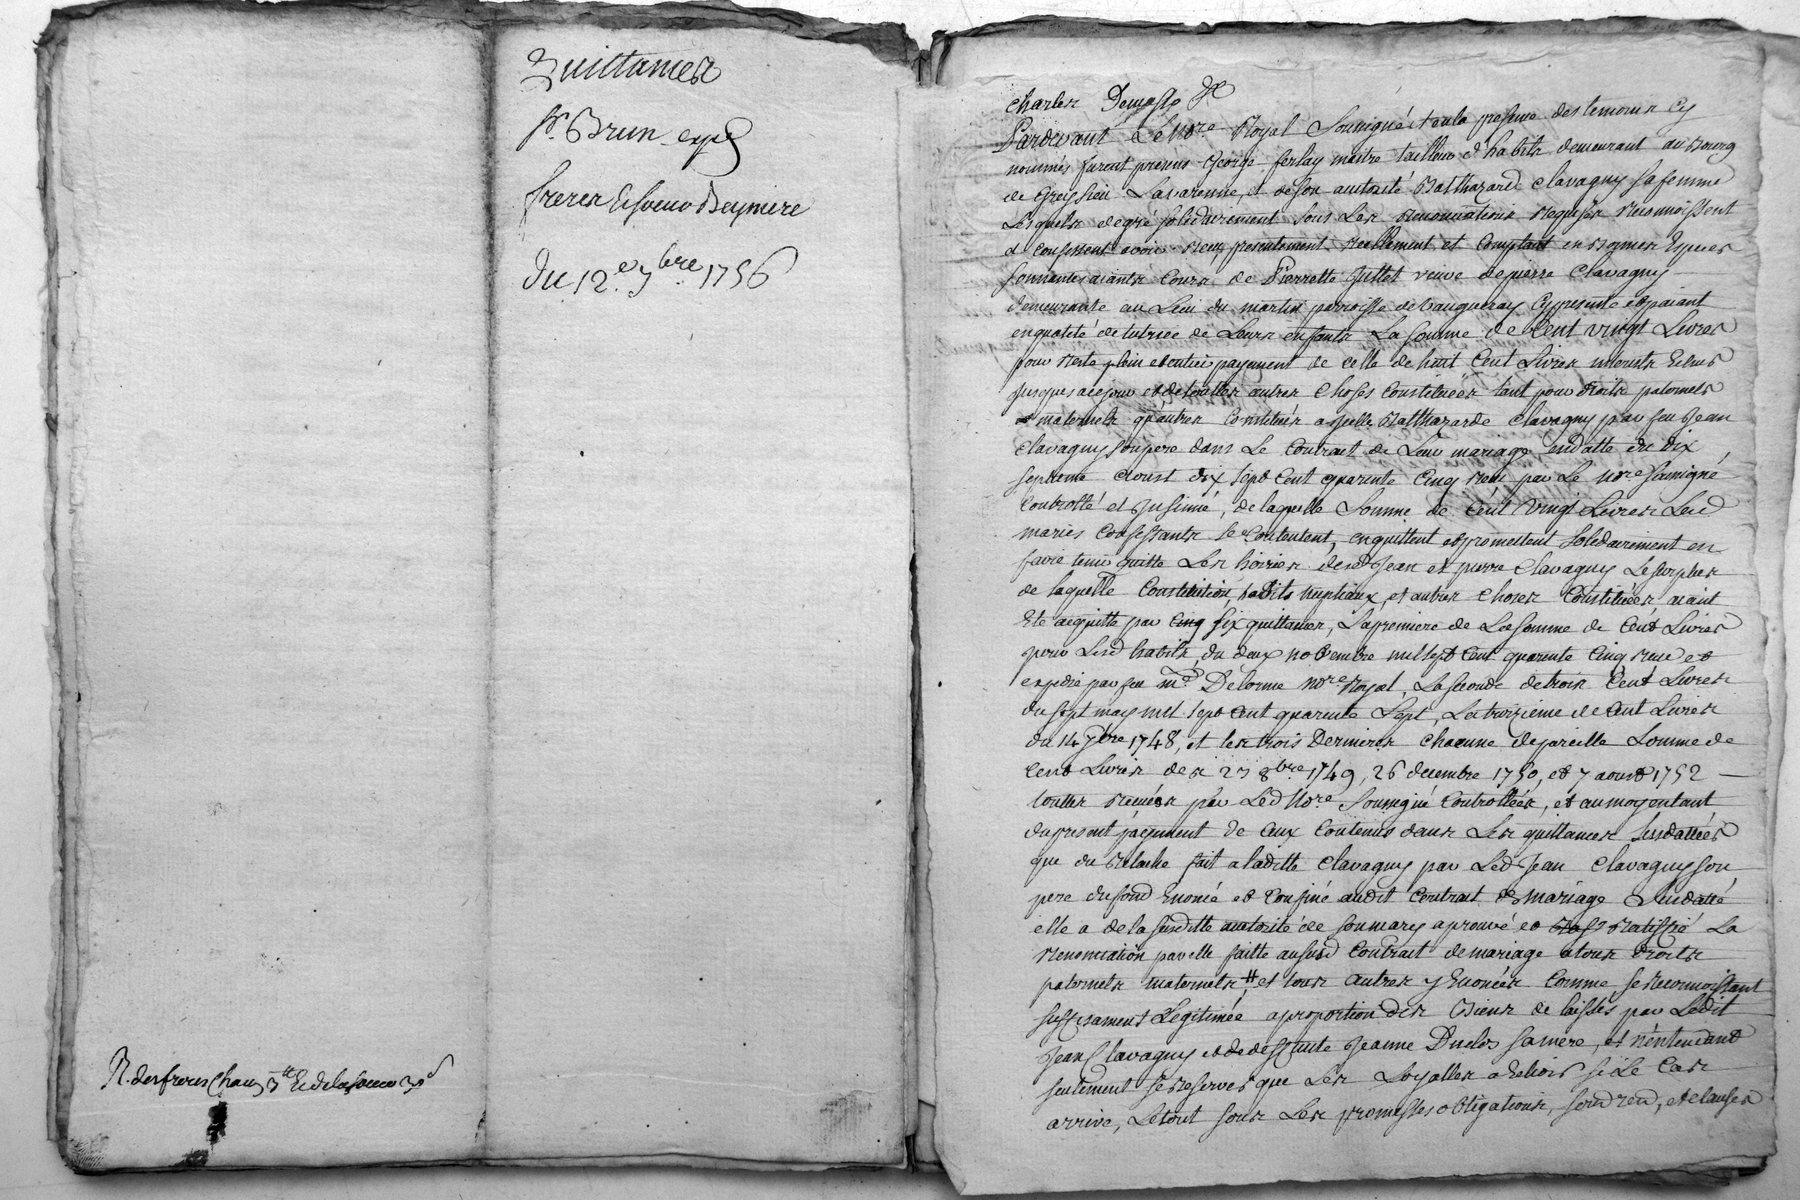 Quittances
Sr. Brun exp
freres et soeur Beymere
du 12.e 7bre 1756
R. des freres chacun 3tt Et de la soeur 30s
charles
Pardevant Le Nore Royal Soussigné et en la presence des temoins Cy
nommés furent presens George ferlay maitre tailleur d'habits demeurant au Bourg
de Greissieu Lavarenne, et de son autorité Balthazarde Clavagny sa femme
Lesquels de gré solidairement sous Les renonciations requises reconnoissent
et confessent avoir reçu presentement reellement et comptant en bonnes Especes
sonnantes aiants cours de Pierrette Jullet veuve de pierre Clavagny
demeurante au Lieu du martin parroisse de Vaugneray Cy presente et paiant
en qualité de tutrice de Leurs enfants La somme de Cent vingt Livres
pour reste plein et entier payement de celle de huit Cent Livres interets Echus
jusques a ce jour et de touttes autres Choses Constituées tant pour droits paternels
et maternels qu'autres Constitués a icelle Balthazarde Clavagny par feu Jean
Clavagny son pere dans Le Contract de Leur mariage en datte du dix
septieme aoust dix sept Cent quarente Cinq reçu par Le Nore soussigné
Controllé et Insinué, de laquelle Somme de Cent vingt Livres Lesd
mariés Confessants se Contentent, en quittent et promettent solidairement en
faire tenir quitte Les hoiries desd Jean et pierre Clavagny Le surplus
de laquelle Constitution, habits nuptiaux, et autres choses Constituées aiant
Eté acquitté par Cinq six quittances, La premiere de La somme de Cent Livres
pour Lesd habits, du deux novembre mil sept Cent quarente Cinq reçue et
expedié par feu me Delorme Nore Royal, La seconde de trois Cent Livres
du sept may mil sept Cent quarente Sept, La troizieme de Cent Livres
du 14 7bre 1748, et les trois Dernieres chacune de pareille Somme de
Cent Livres des 27 8bre 1749, 26 decembre 1750, et 7 aoust 1752
touttes reçues par Led Nore Soussigné Controllées, et au moyen tant
du present payement de Ceux Contenus dans Les quittances susdattées
que du relache fait a laditte Clavagny par Led Jean Clavagny son
pere du fond Enoncé et Confiné audit Contrat de mariage susdatté
elle a de la susditte autorité de son mary aprouvé et ratiffié La
renonciation par elle faitte ausud Contrat de mariage a tous droits
paternels maternels # et tous autres y Enoncés Comme se reconnoissant
suffisament Legitimée a proportion des Biens de laissés par Ledit
Jean Clavagny et de deffunte Jeanne Duclos sa mere, et n'entendant
seulement se reserver que Les Loyalles echutes si Le Cas
arrive, Le tout sous Les promesses obligations, soud rend, et clauses